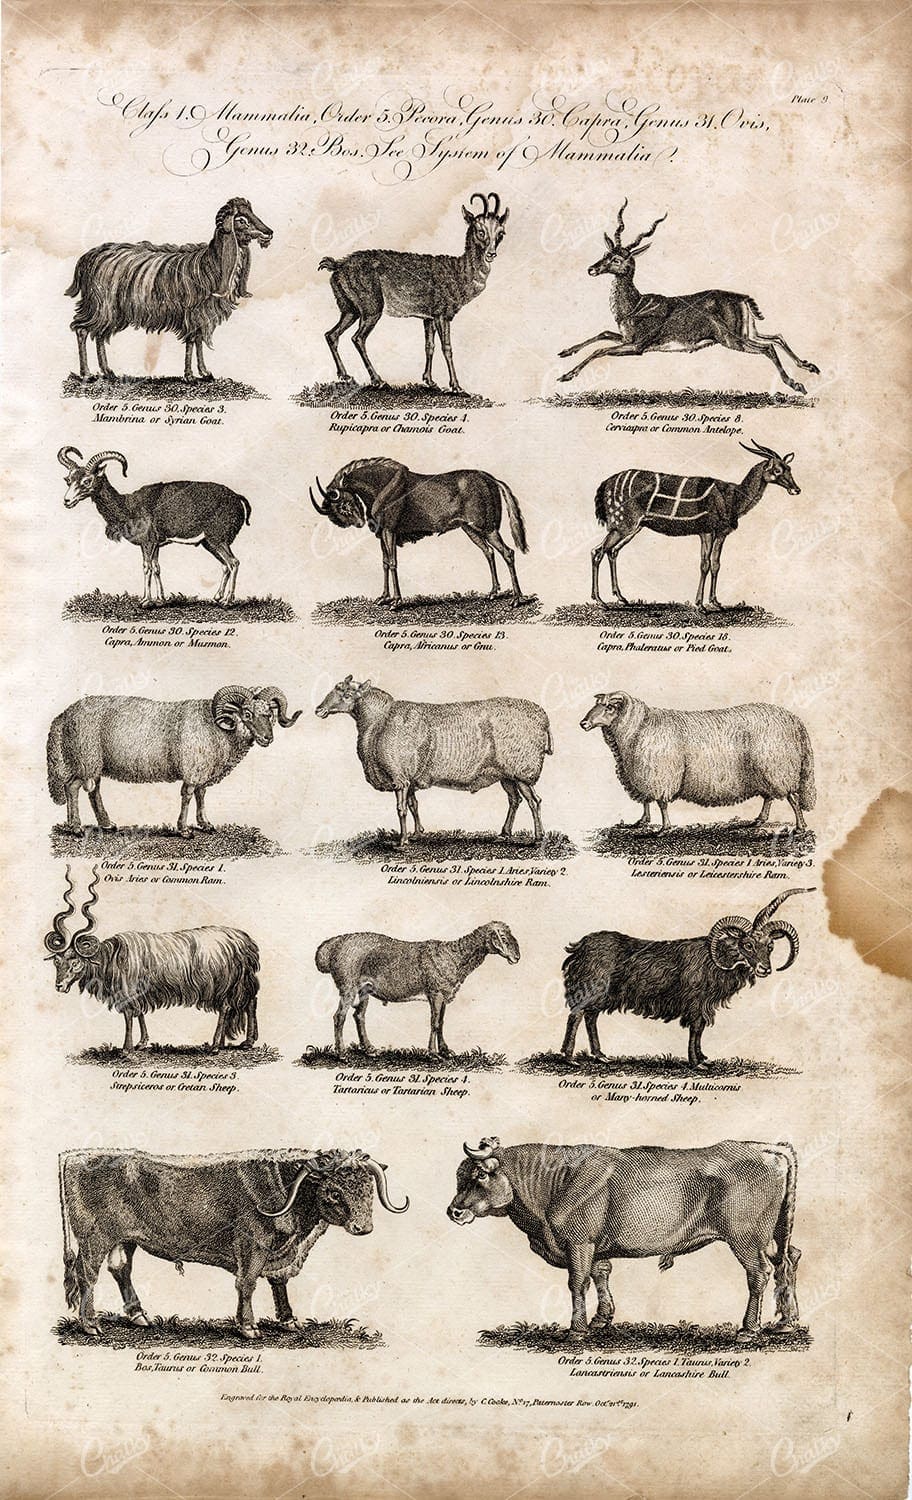 Plate 9
Class 1. Mammalia, Order 5. Pecora, Genus 30. Capra, Genus 31. Ovis,
Genus 32. Bos. See System of Mammalia.
Order 5. Genus 30. Species 3.
Mambrina or Syrian Goat.
Order 5. Genus 30. Species 4.
Rupicapra or Chamois Goat.
Order 5. Genus 30. Species 8.
Cervicapra or Common Antelope.
Order 5. Genus 30. Species 12.
Capra, Ammon or Musmon.
Order 5. Genus 30. Species 13.
Capra, Africanus or Gnu.
Order 5. Genus 30. Species 18.
Capra, Phaleratus or Pied Goat.
Order 5. Genus 31. Species 1.
Ovis Aries or Common Ram.
Order 5. Genus 31. Species 1. Aries, Variety 2.
Lincolniensis or Lincolnshire Ram.
Order 5. Genus 31. Species 1 Aries, Variety 3.
Lesteriensis or Leicestershire Ram.
Order 5. Genus 31. Species 3
Strepsiceros or Cretan Sheep.
Order 5. Genus 31. Species 4.
Tartaricus or Tartarian Sheep.
Order 5. Genus 31. Species 4. Multicornis
or Many-horned Sheep.
Order 5. Genus 32. Species 1.
Bos, Taurus or Common Bull.
Order 5. Genus 32. Species 1. Taurus, Variety 2.
Lancastriensis or Lancashire Bull.
Engraved for the Royal Encyclopædia, & Published as the Act directs, by C. Cooke, No. 17, Paternoster Row. Octr. 21st. 1791.
Chalky